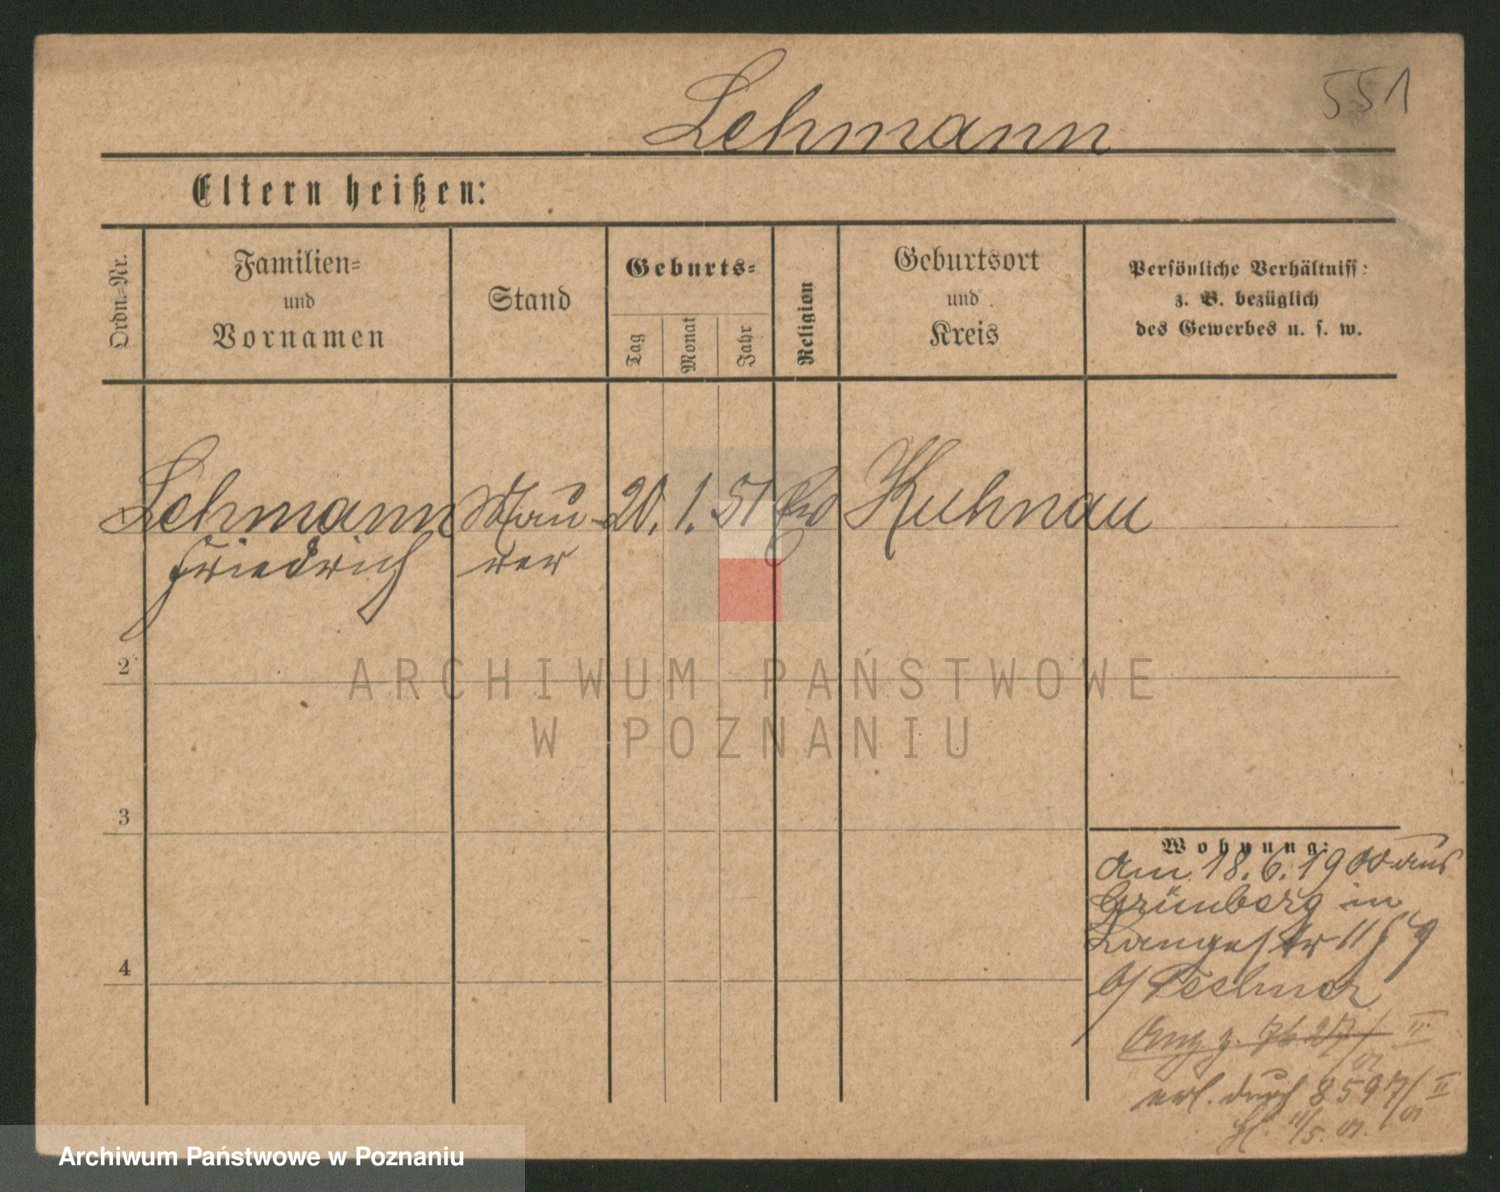 551
Lehmann
Eltern heißen:
Ordn.-Nr.
Familien-
und
Vornamen
Stand
Geburts-
Tag
Monat
Jahr
Religion
Geburtsort
und
Kreis
Persönliche Verhältniss:
z. B. bezüglich
des Gewerbes u. s. w.
Lehmann Mau- 20. 1. 51 Ev Kuhnau
Friedrich rer
2
3
4
Wohnung:
am 18.6.1900 aus
Grünberg in
Langestr 11
b/
Ang. z. II
erl. durch 8597/01 II
11/5. 01.
ARCHIWUM PAŃSTWOWE
W POZNANIU
Archiwum Państwowe w Poznaniu